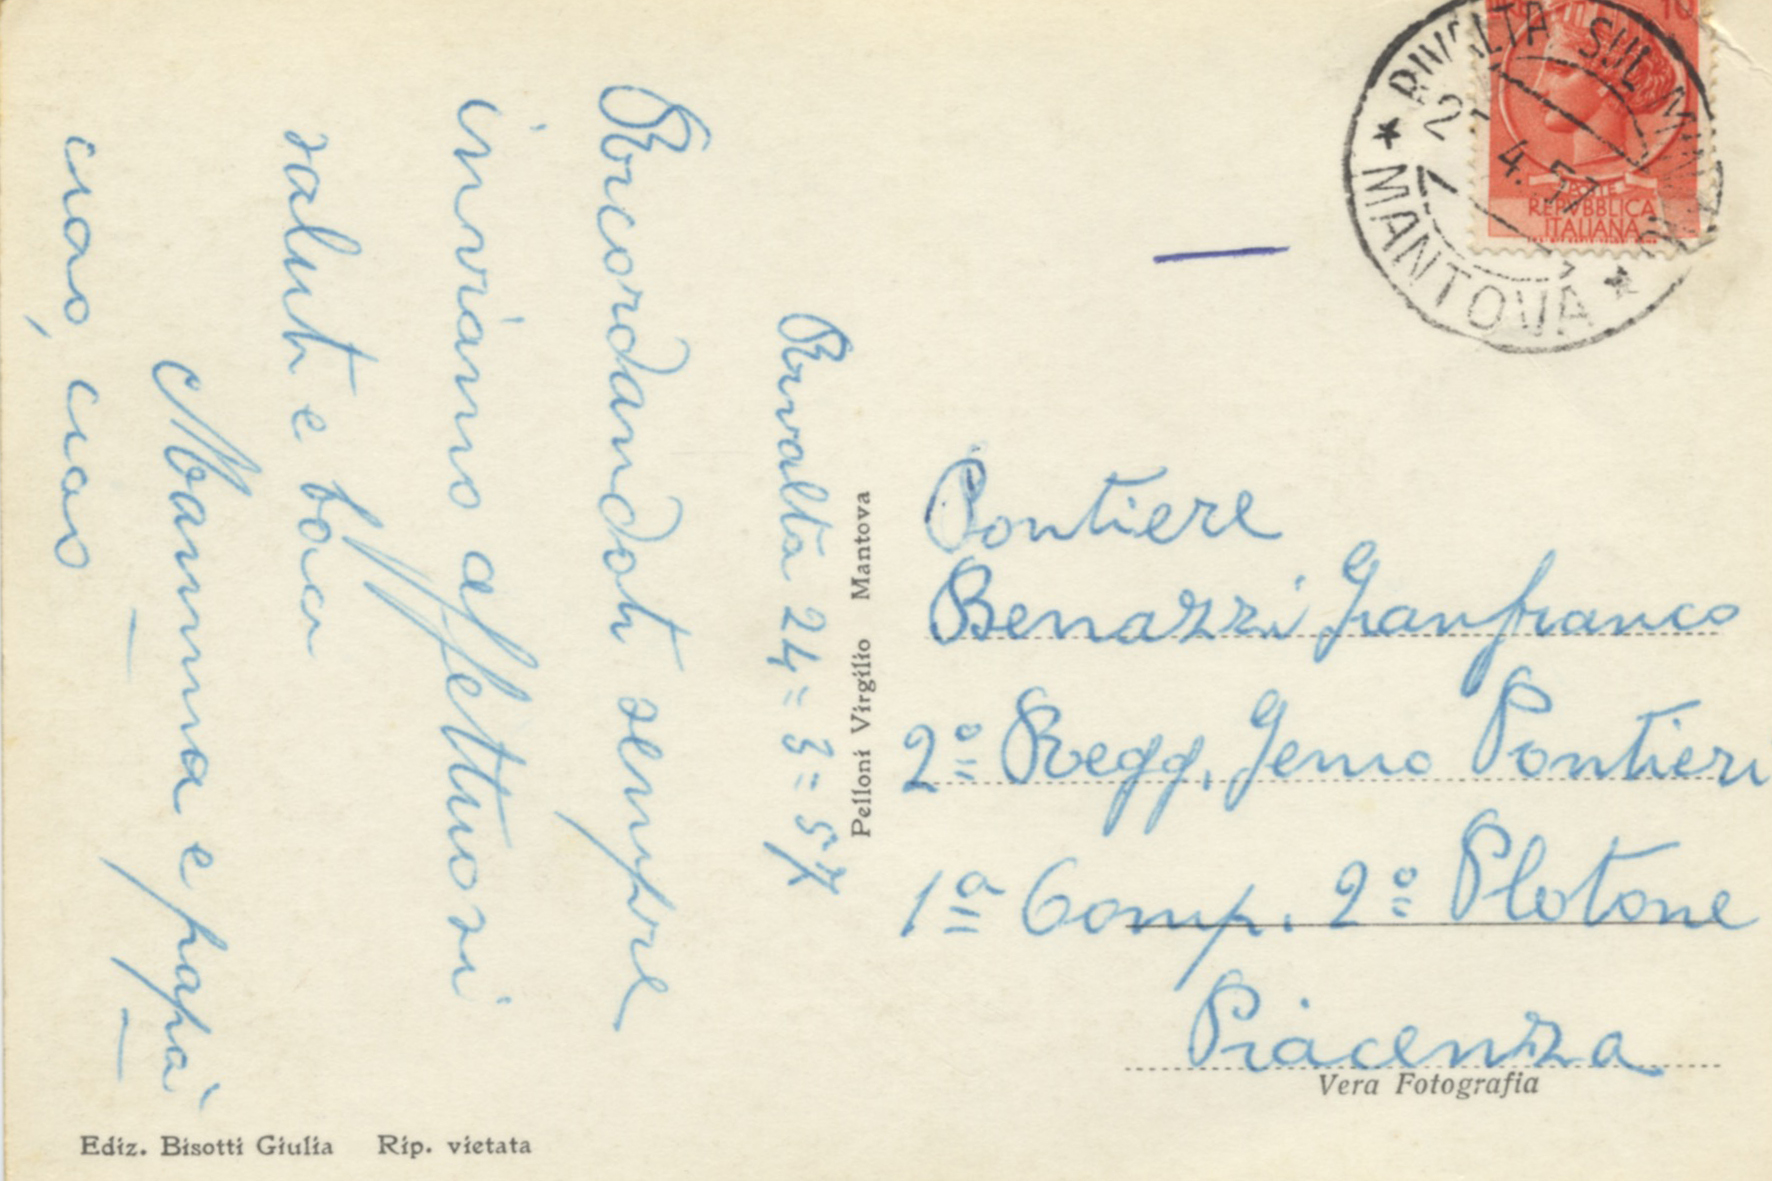 Rivalta 24=3=57
Ricordandoti sempre
inviamo affettuosi
saluti e baci
Mamma e papà
ciao, ciao
Pelloni Virgilio Mantova
Ediz. Bisotti Giulia Rip. vietata
RIVALTA SUL MINCIO
4.57
★ MANTOVA ★
REPVBBLICA
ITALIANA
Pontiere
Benazzi Gianfranco
2º Regg. Genio Pontieri
1ª Comp. 2º Plotone
Piacenza
Vera Fotografia